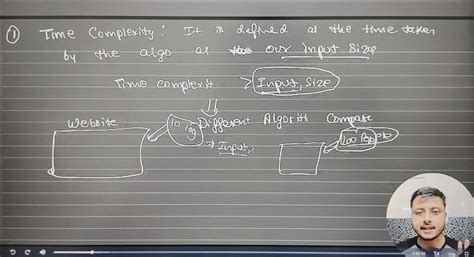 ① Time Complexity: It is defined as the time taken
by the algo as our input size
Time complexity > Input, Size
Different Algorith Compare
Website
10
100 People
→ Input,